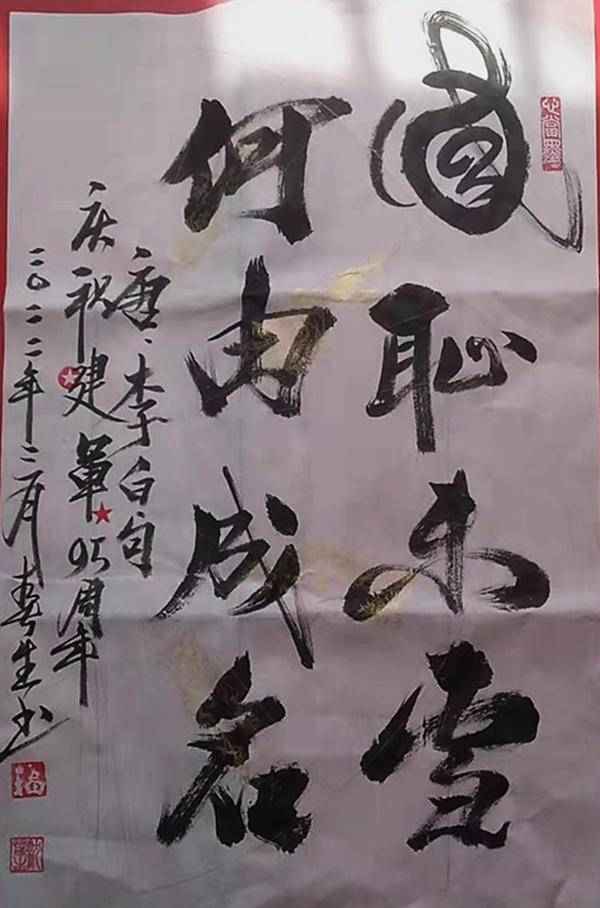 國恥未雪
何由成名
唐、李白句
庆祝建軍95周年
二〇二二年三月春生书